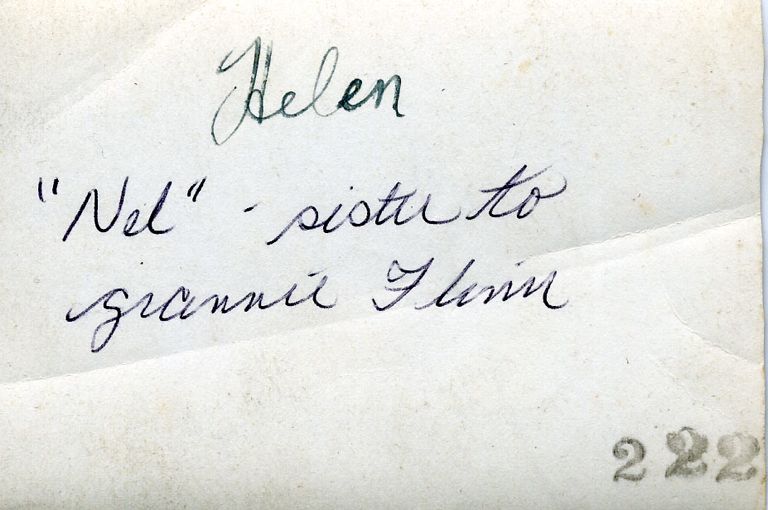 Helen
"Nel" - sister to
grannie Flinn
222